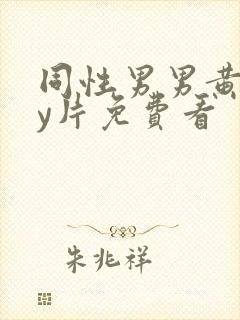 同性男男黄
y片免費看
朱兆祥